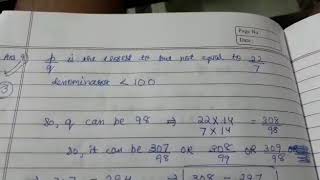 Page No.
Date:
Ans 9) p/q is the nearest to but not equal to 22/7
denominator < 100
③
So, q can be 98 ⇒ 22×14 / 7×14 = 308/98
So, it can be 307/98 OR 308/99 OR 309/98 OR
308 - 297